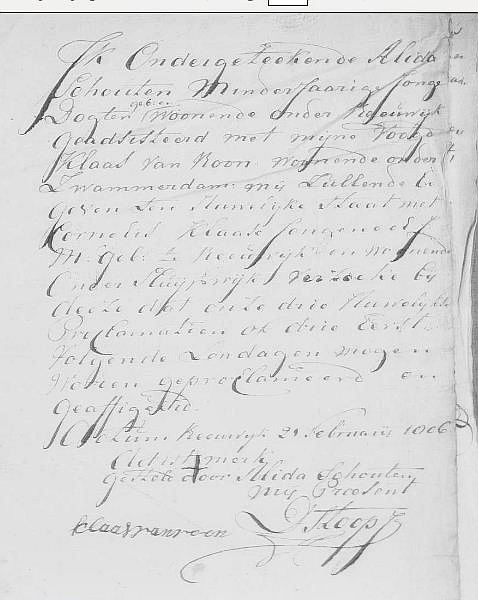 Ik Ondergeteekende Alida
Schouten Minderjaarige Jonge
Dogter geb: en Woonende onder Reeuwijk
geadsisteerd met mijne Voogd
Klaas van Roon woonende onder
Zwammerdam mij zullende be
geven ten Huwelijke Staat met
Cornelis Klaase Jongeneel J
M: geb: te Reeuwijk en woonende
Onder Sluijpwijk verzoeke bij
deeze dat onze drie Huwelijkse
Proclamatien op drie Eerst
volgende Zondagen mogen
Worden geproclameerd en
geaffigeerd.
Actum Reeuwijk 21 Februarij 1806
dit is t merk
gestelt door Alida Schouten
mij Present
klaas van roon